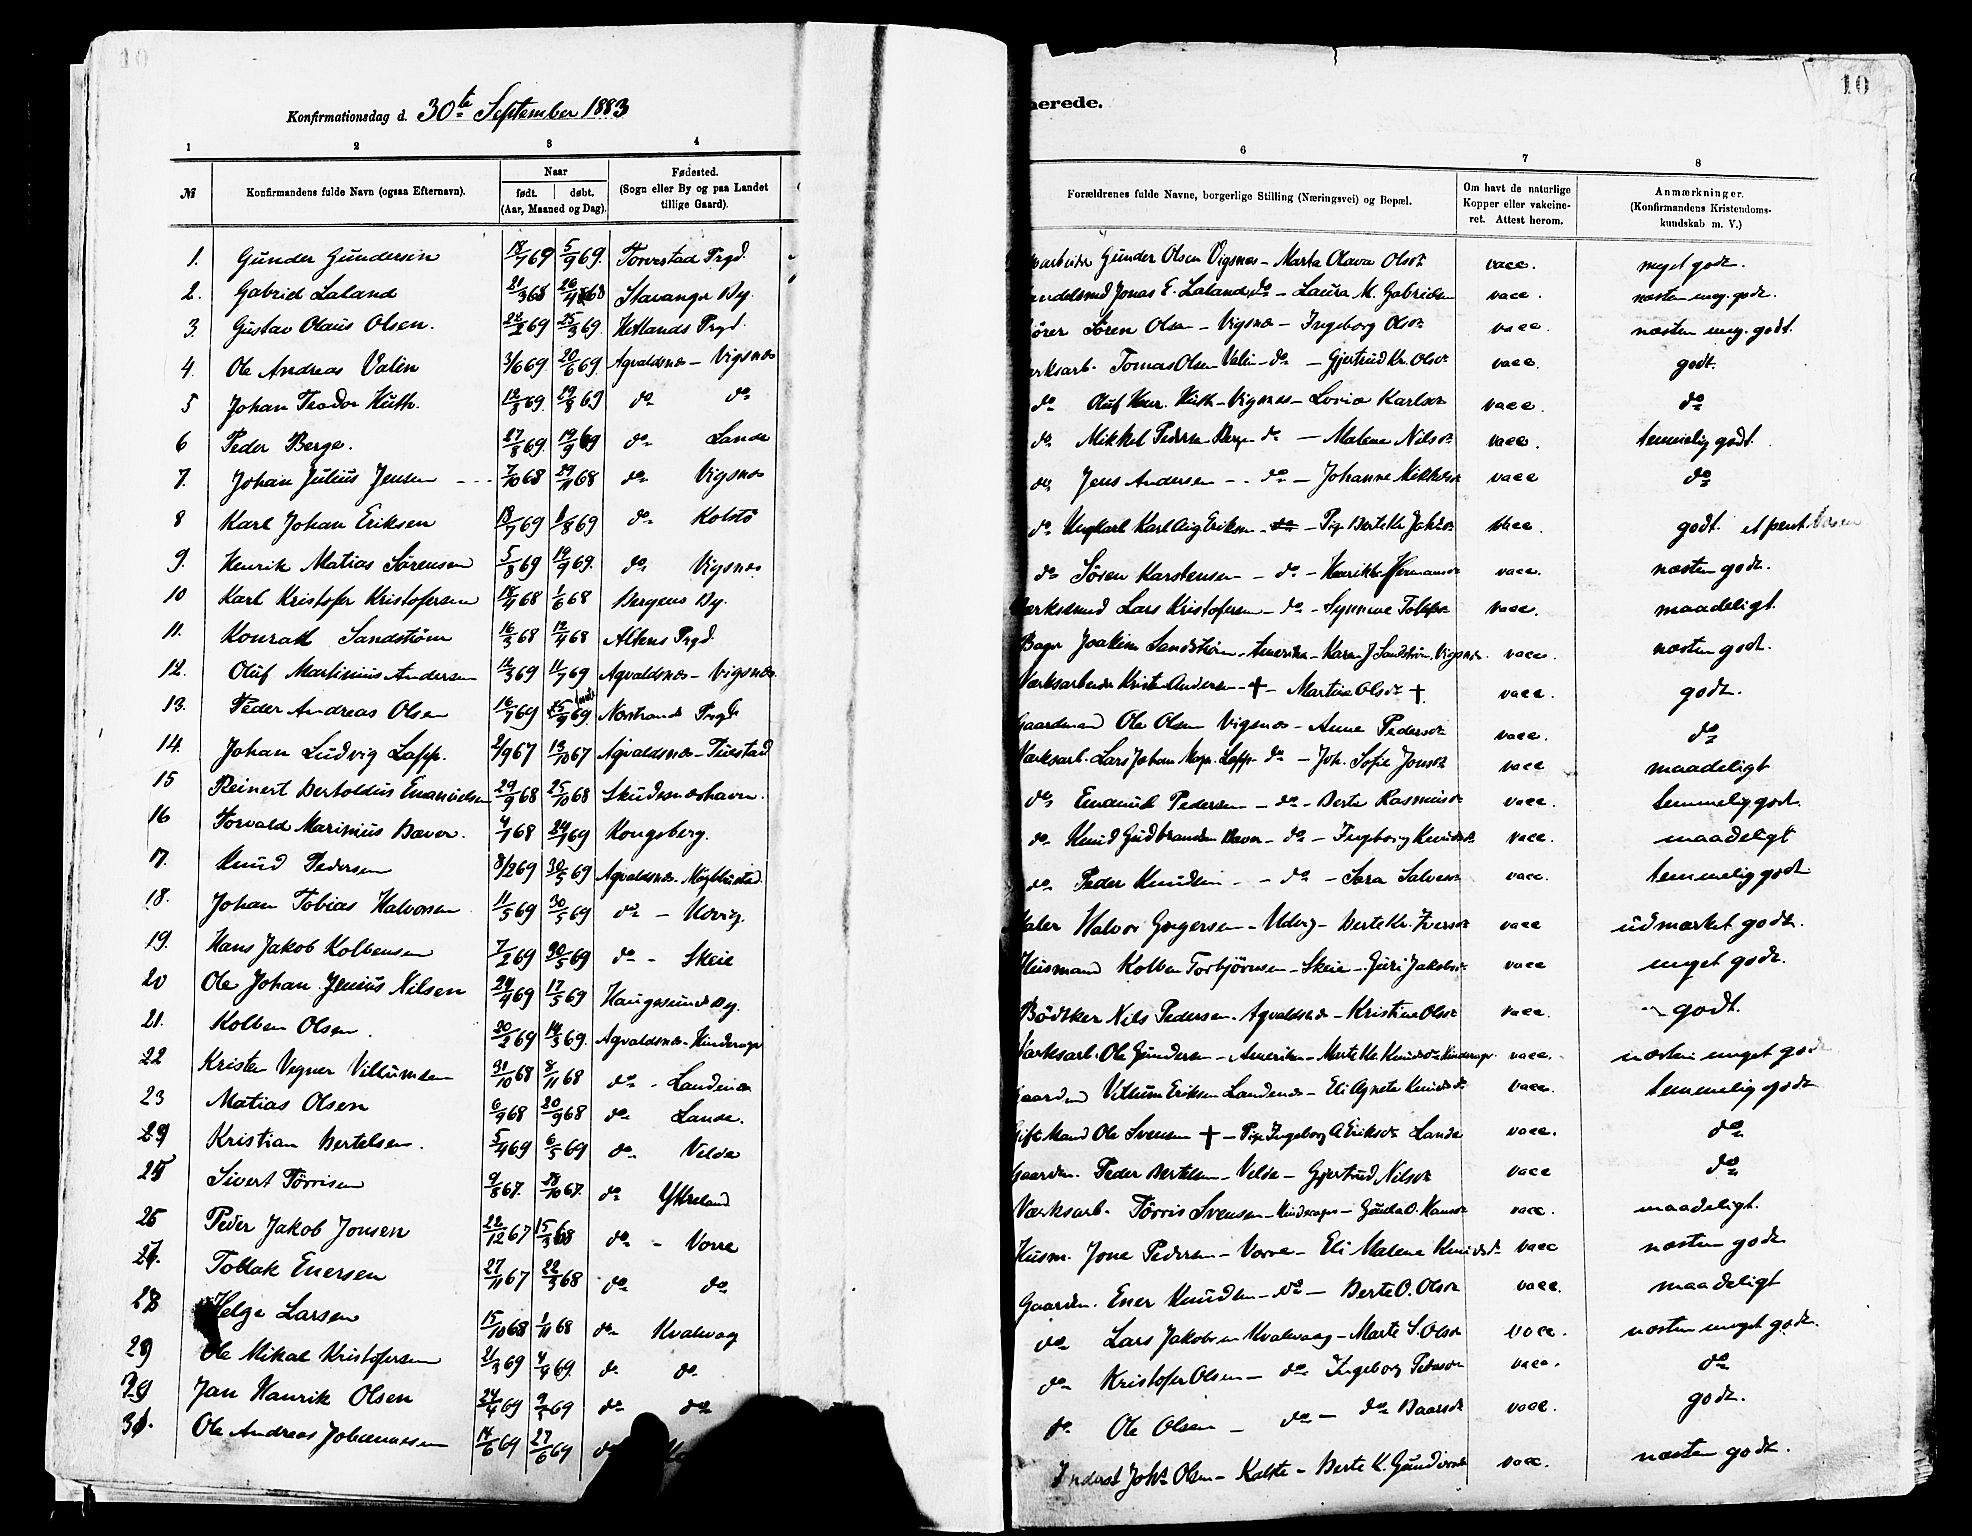 10
Konfirmationsdag d. 30te September 1883
1 2 3 4
№ Konfirmandens fulde Navn (ogsaa Efternavn). Naar født. døbt. (Aar, Maaned og Dag). Fødested. (Sogn eller By og paa Landet tillige Gaard).
1. Gunder Gundersen 18/7 69 5/9 69. Torvestad Prgd.
2. Gabriel Laland 21/3 68 26/4 68 Stavanger By.
3. Gustav Olaus Olsen. 22/2 69 25/3 69. Hetlands Prgd.
4. Ole Andreas Valen 3/6 69 20/6 69. Agvaldsnæs - Vigsnæs
5 Johan Teodor Huth. 12/8 69. 19/8 69 do do
6 Peder Berge. 27/8 69. 19/9 69 do Lande
7. Johan Julius Jensen 7/10 68 29/11 68 do Vigsnæs
8 Karl Johan Eriksen 13/7 69 1/8 69 do Kolstø
9. Henrik Matias Sørensen 5/8 69 19/9 69. do Vigsnæs
10 Karl Kristofer Kristofersen 18/4 68 1/6 68 Bergens By.
11. Konrad Sandstøm 16/3 68 12/4 68 Altens Prgd
12. Oluf Martinius Andersen 12/3 69 11/7 69 Agvaldsnæs - Vigsnæs.
13. Peder Andreas Olsen 16/7 69 25/9 69 Nerstrands Prgd
14. Johan Ludvig Lapp. 2/9 67 13/10 67 Agvaldsnæs - Tuestad
15 Reinert Bertoldus Emanuelsen 29/9 68 25/10 68 Skudesnæshavn.
16 Torvald Marinius Baver. 4/7 68 24/1 69 Kongsberg.
17. Knud Pedersen 8/2 69 30/5 69 Agvaldsnæs - Møgblestad.
18. Johan Tobias Halvorsen 11/5 69 30/5 69 do - Udvig.
19. Hans Jakob Kolbensen 7/2 69 30/5 69 do - Skeie
20 Ole Johan Jenius Nilsen 24/4 69 17/5 69 Haugesunds By.
21. Kolben Olsen. 20/2 69 14/3 69. Agvaldsnæs - Hinderager
22 Kristen Vegner Villumsen 31/10 68 8/11 68 do - Landenæs
23 Matias Olsen 6/9 68 20/9 68 do Lande.
24 Kristian Bertelsen. 5/4 69 6/5 69 do Velde
25 Sivert Tørrisen 9/8 67. 28/10 67. do Ytreland
26 Peder Jakob Jonsen 22/12 67 15/3 68 do - Vorre
27. Tollak Enersen 27/11 67 22/3 68 do do
28 Helge Larsen 15/10 68 1/11 68 do Kvalvaag
29 Ole Mikal Kristofersen 21/3 69 4/4 69. do do
30 Jan Hanrik Olsen 24/4 69 9/5 69 do do
31. Ole Andreas Johannesen 14/6 69 27/6 69 do
10
nerede.
6 7 8
Forældrenes fulde Navne, borgerlige Stilling (Næringsvei) og Bopæl. Om havt de naturlige Kopper eller vakcineret. Attest herom. Anmærkninger. (Konfirmandens Kristendomskundskab m. V.)
arbeider Gunder Olsen Vigsnæs - Marta Olava Olsdr vacc. meget godt.
Jonas E. Laland do - Laura M. Gabrielsen vacc. næsten meg. godt.
Søren Olsen - Vigsnæs - Ingeborg Olsdr vacc. næsten meg. godt.
Tomas Olsen Valen - do - Gjertrud Kr. Olsdr vacc. godt.
do Oluf Huth - Vigsnæs - Lovise Karlsdr vacc. do
do Mikkel Pedersen Berge do - Malene Nilsdr vacc. temmelig godt.
do Jens Andersen - do - Johanne Mikkelsdr vacc do
do Ungkarl Karl Aug Eriksen - do - Pige Berte Kr. Jakobsdr vacc godt.
do Søren Karstensen - do - Henrikke Hermansdr vacc. næsten godt.
Lars Kristofersen - do - Synneve vacc. maadeligt.
Bager Joakim Sandstrøm - Amerika - Karen J. Sandstrøm, Vigsnæs vacc. næsten godt.
Værksarbeider Kristen Andersen + - Martine Olsdr + vacc. godt.
Gaardmand Ole Olsen Vigsnæs - Anne Pedersdr vacc. do
Værksarb. Lars Johan Lapp - do - Joh. Sofie Jonsdr vacc maadeligt
do Emanuel Pedersen - do - Berte Rasmusdr vacc. temmelig godt.
do Knud Gudbrandsen Baver - do - Ingeborg Knudsdr vacc. maadeligt
do Peder Knudsen - do - Sara Salvesdr vacc. temmelig godt
Maler Halvor Gregersen - Udvig - Berte Kr. Iversdr vacc udmærket godt.
Husmand Kolben Torbjørnsen - Skeie - Guri Jakobsdr vacc meget godt.
Bødtker Nils Pedersen - Agvaldsnæs - Kristine Olsdr vacc. godt.
Værksarb. Ole Gundersen - Amerika - Marte Kr. Knudsdr Hinderager vacc. næsten meget godt
Gaardm Villum Eriksen Landenæs - Eli Agnete Knudsdr vacc. temmelig godt
Gift Mand Ole Svensen + - Pige Ingeborg A. Eriksdr Lande vacc. do
Gaardm. Peder Bertelsen - Velde - Gjertrud Nilsdr vacc do
Værksarb. Tørris Svensen - Hinderager - Gunla O. Hansdr vacc. maadeligt.
Husm. Jone Pedersen - Vorre - Eli Malene Knudsdr vacc næsten godt
Gaardm. Ener Knudsen - do - Berte O. Olsdr vacc. maadeligt
do Lars Jakobsen Kvalvaag - Marte S. Olsdr vacc. næsten meget godt.
do Kristofer Olsen - do Ingeborg Pedersdr vacc. do
do Ole Olsen - do - do Baarsdr vacc. godt.
Inderst Johs Olsen - Kalstø - Berte K. Gundersdr vacc. næsten godt.